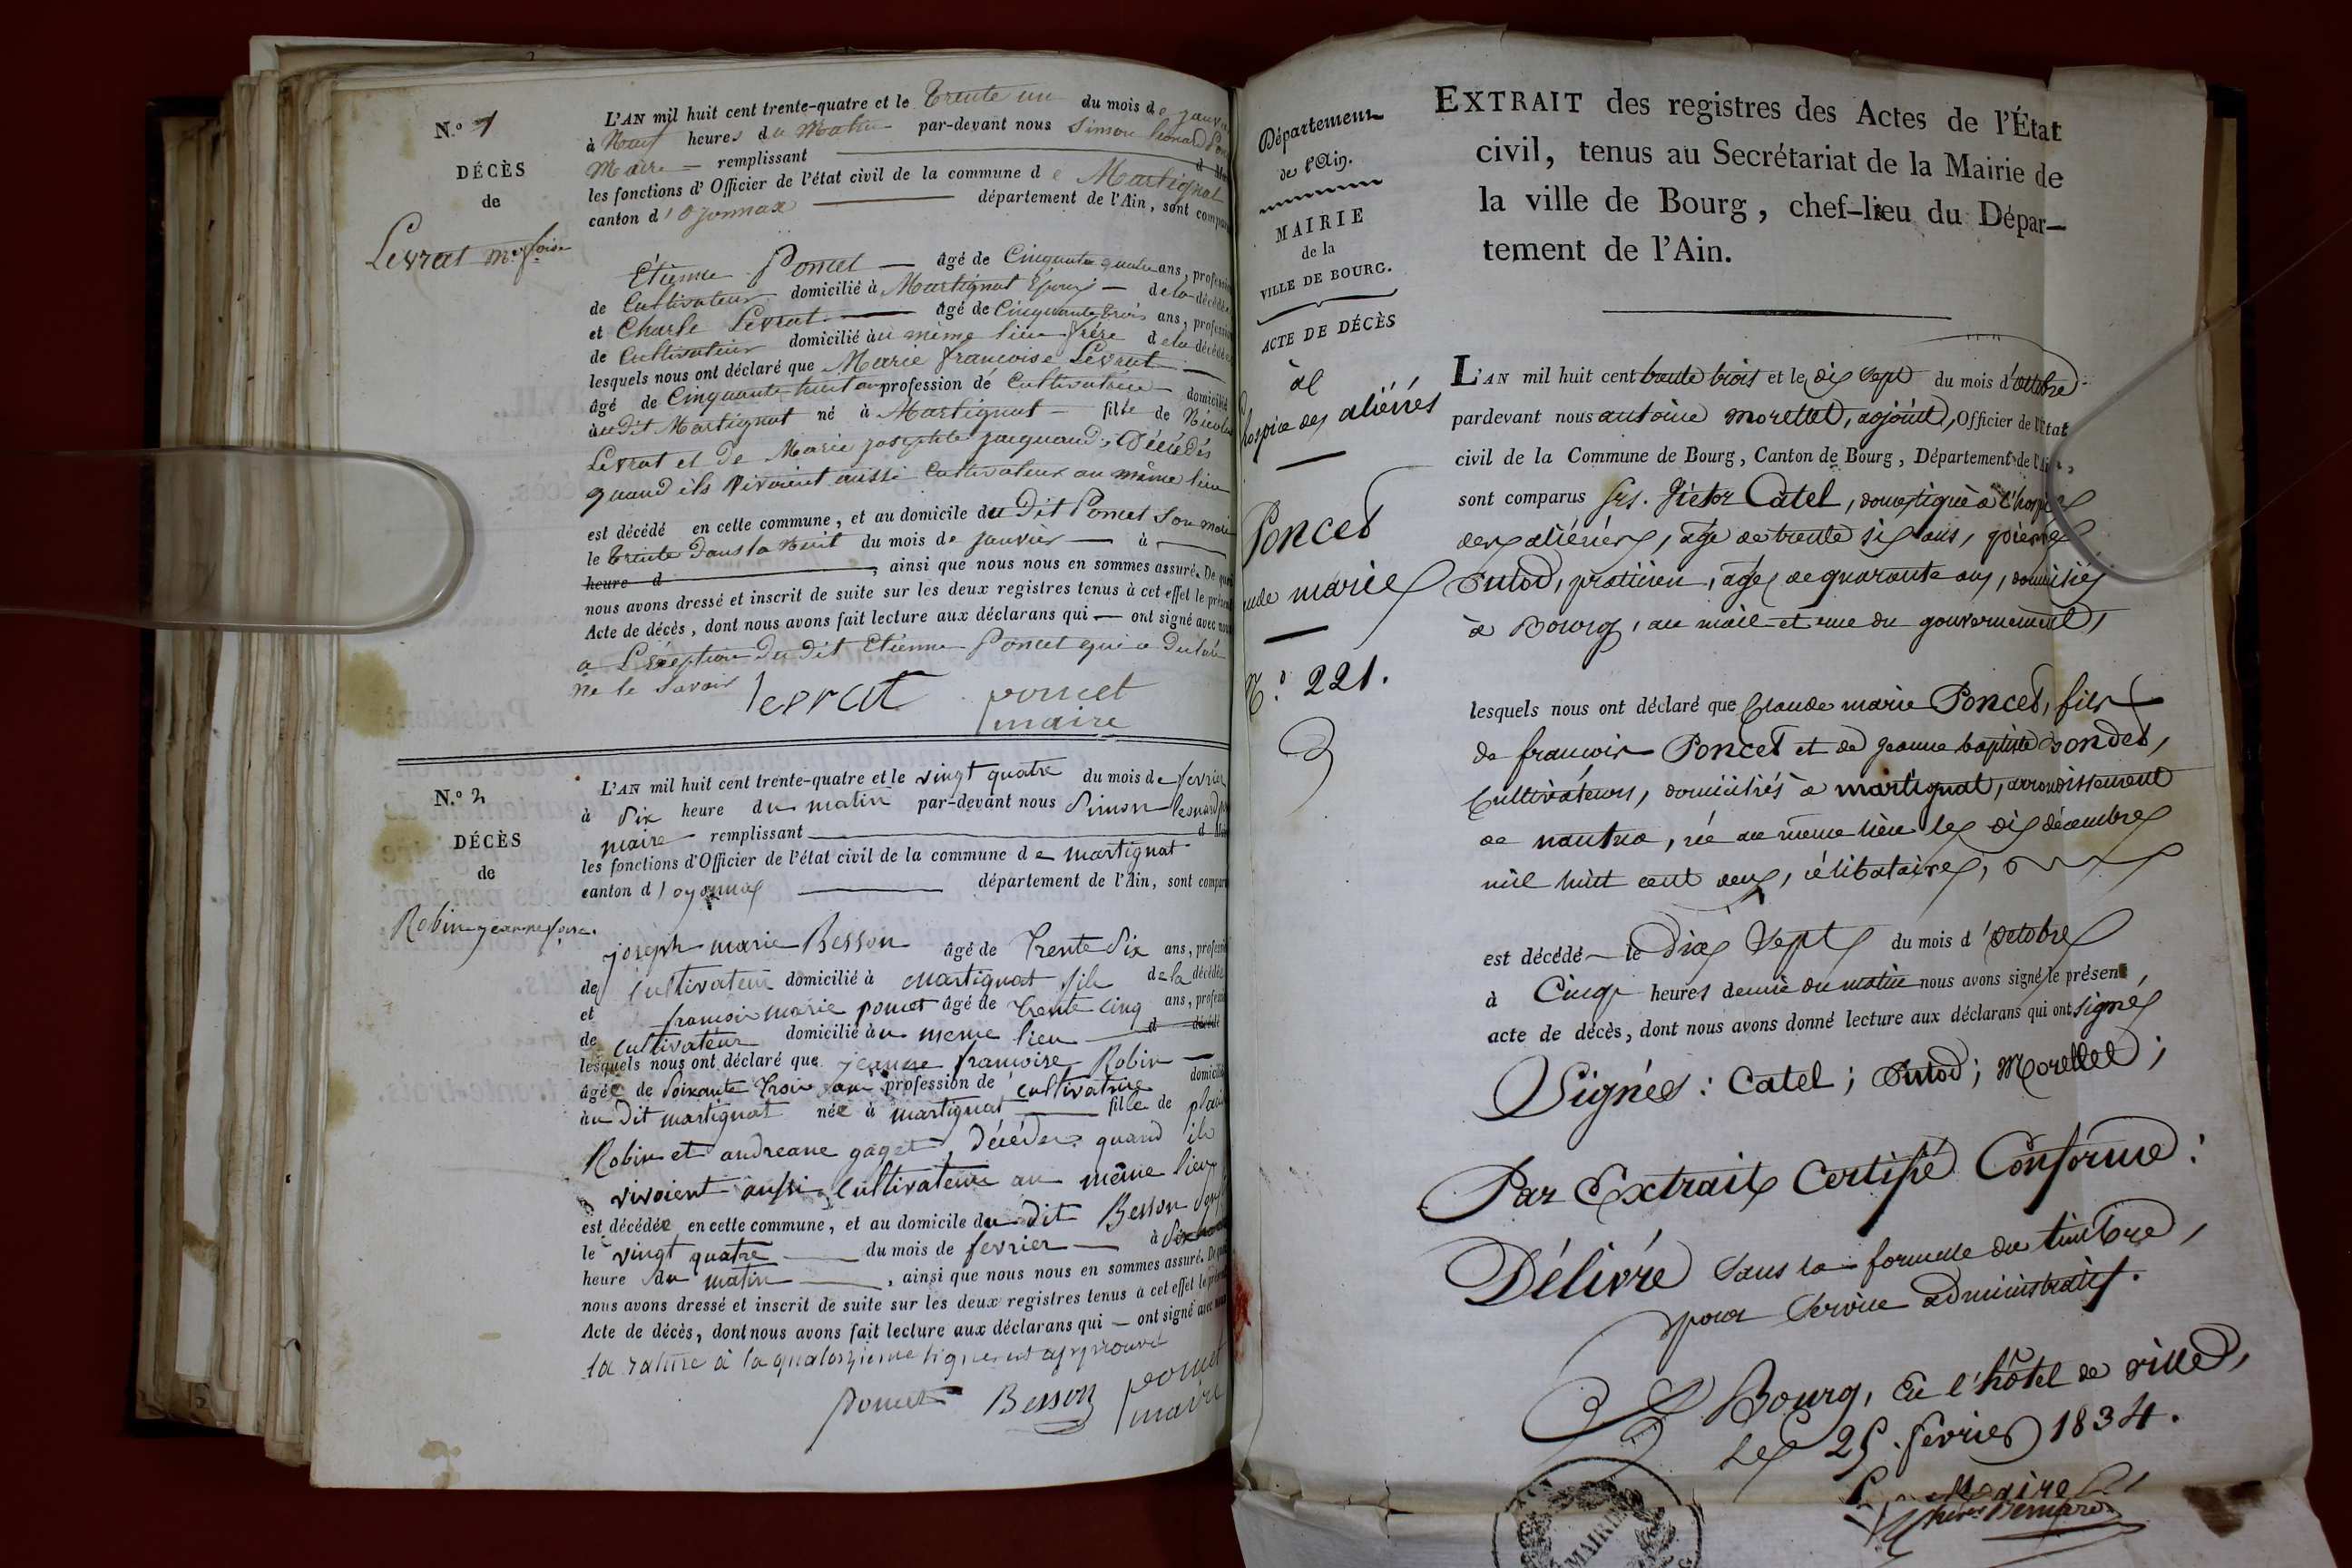 N.º 1
DÉCÈS
de
Levrat Mie fçoise
L'AN mil huit cent trente-quatre et le trente un du mois de janv
à Neuf heures du Matin par-devant nous Simon Léonard
Maire remplissant
les fonctions d'Officier de l'état civil de la commune de Martignat
canton d'Oyonnax département de l'Ain, sont compa
Étienne Poncet âgé de Cinquante quatre ans, profession
de Cultivateur domicilié à Martignat Époux de la décédée
et Charle Levrat âgé de Cinquante trois ans, profession
de Cultivateur domicilié au même lieu frére de la décédée
lesquels nous ont déclaré que Marie francoise Levrat
âgé de Cinquante huit an profession de Cultivatrice domicilié
audit Martignat né à Martignat fille de Nicolas
Levrat et de Marie josephte jacquand, Décédés
quand ils Vivoient aussi Cultivateur au même lieu
est décédé en cette commune, et au domicile du Dit Poncet Son mari
le trente Dans la Nuit du mois de janvier à
heure d , ainsi que nous nous en sommes assuré. De quoi
nous avons dressé et inscrit de suite sur les deux registres tenus à cet effet le présent
Acte de décès, dont nous avons fait lecture aux déclarans qui ont signé avec nous
a L'éxeption Du dit Etienne Poncet qui a Déclaré
ne le Savoir
levrat poncet
maire
N.º 2
DÉCÈS
de
Robin jeanne foise.
L'AN mil huit cent trente-quatre et le vingt quatre du mois de fevrier
à dix heure du matin par-devant nous Simon leonard
maire remplissant
les fonctions d'Officier de l'état civil de la commune de martignat
canton d'oyonnax département de l'Ain, sont compar
joseph marie Besson âgé de trente Six ans, profession
de Cultivateur domicilié à Martignat fils de la décédée
et francois marie poncet âgé de trente cinq ans, profession
de cultivateur domicilié au meme lieu d décédé
lesquels nous ont déclaré que jeanne francoise Robin
âgée de Soixante trois an profession de cultivatrice domicilié
au Dit martignat née à martignat fille de
Robin et andreane gaget, Décédes quand ils
vivoient aussi Cultivateur au même lieu
est décédée en cette commune, et au domicile du dit Besson
le vingt quatre du mois de fevrier à Six
heure du matin , ainsi que nous nous en sommes assuré. De quoi
nous avons dressé et inscrit de suite sur les deux registres tenus à cet effet le présent
Acte de décès, dont nous avons fait lecture aux déclarans qui ont signé avec nous
la rature à la quatorzieme ligne est approuvé
poncet Besson poncet
maire
Département
de l'Ain.
MAIRIE
de la
VILLE DE BOURG.
ACTE DE DÉCÈS
de
hospice des aliénés
Poncet
ude marie
N.º 221.
EXTRAIT des registres des Actes de l'État
civil, tenus au Secrétariat de la Mairie de
la ville de Bourg, chef-lieu du Dépar-
tement de l'Ain.
L'AN mil huit cent trente trois et le dix Sept du mois d'octobre
pardevant nous antoine morellet, adjoint, Officier de l'État
civil de la Commune de Bourg, Canton de Bourg, Département de l'Ain,
sont comparus frs. Victor Catel, domestique à l'hospice
des aliénés, âgé de trente six ans, pierre
Putod, praticien, âgé de quarante ans, domiciliés
à Bourg, au mail et rue du gouvernement,
lesquels nous ont déclaré que Claude marie Poncet, fils
de francois Poncet et de jeanne baptiste
Cultivateurs, domiciliés à martignat, arrondissement
de nantua, né au même lieu le dix décembre
mil huit cent deux, célibataire,
est décédé le dix Sept du mois d'octobre
à Cinq heures demie du matin nous avons signé le présent
acte de décès, dont nous avons donné lecture aux déclarans qui ont signé
Signés : Catel ; Putod ; Morellet ;
Par Extrait Certifié Conforme :
Délivré Sans la formule du timbre,
pour Service administratif.
Bourg, En l'hôtel de ville,
Le 25 février 1834.
Maire
MAIRIE